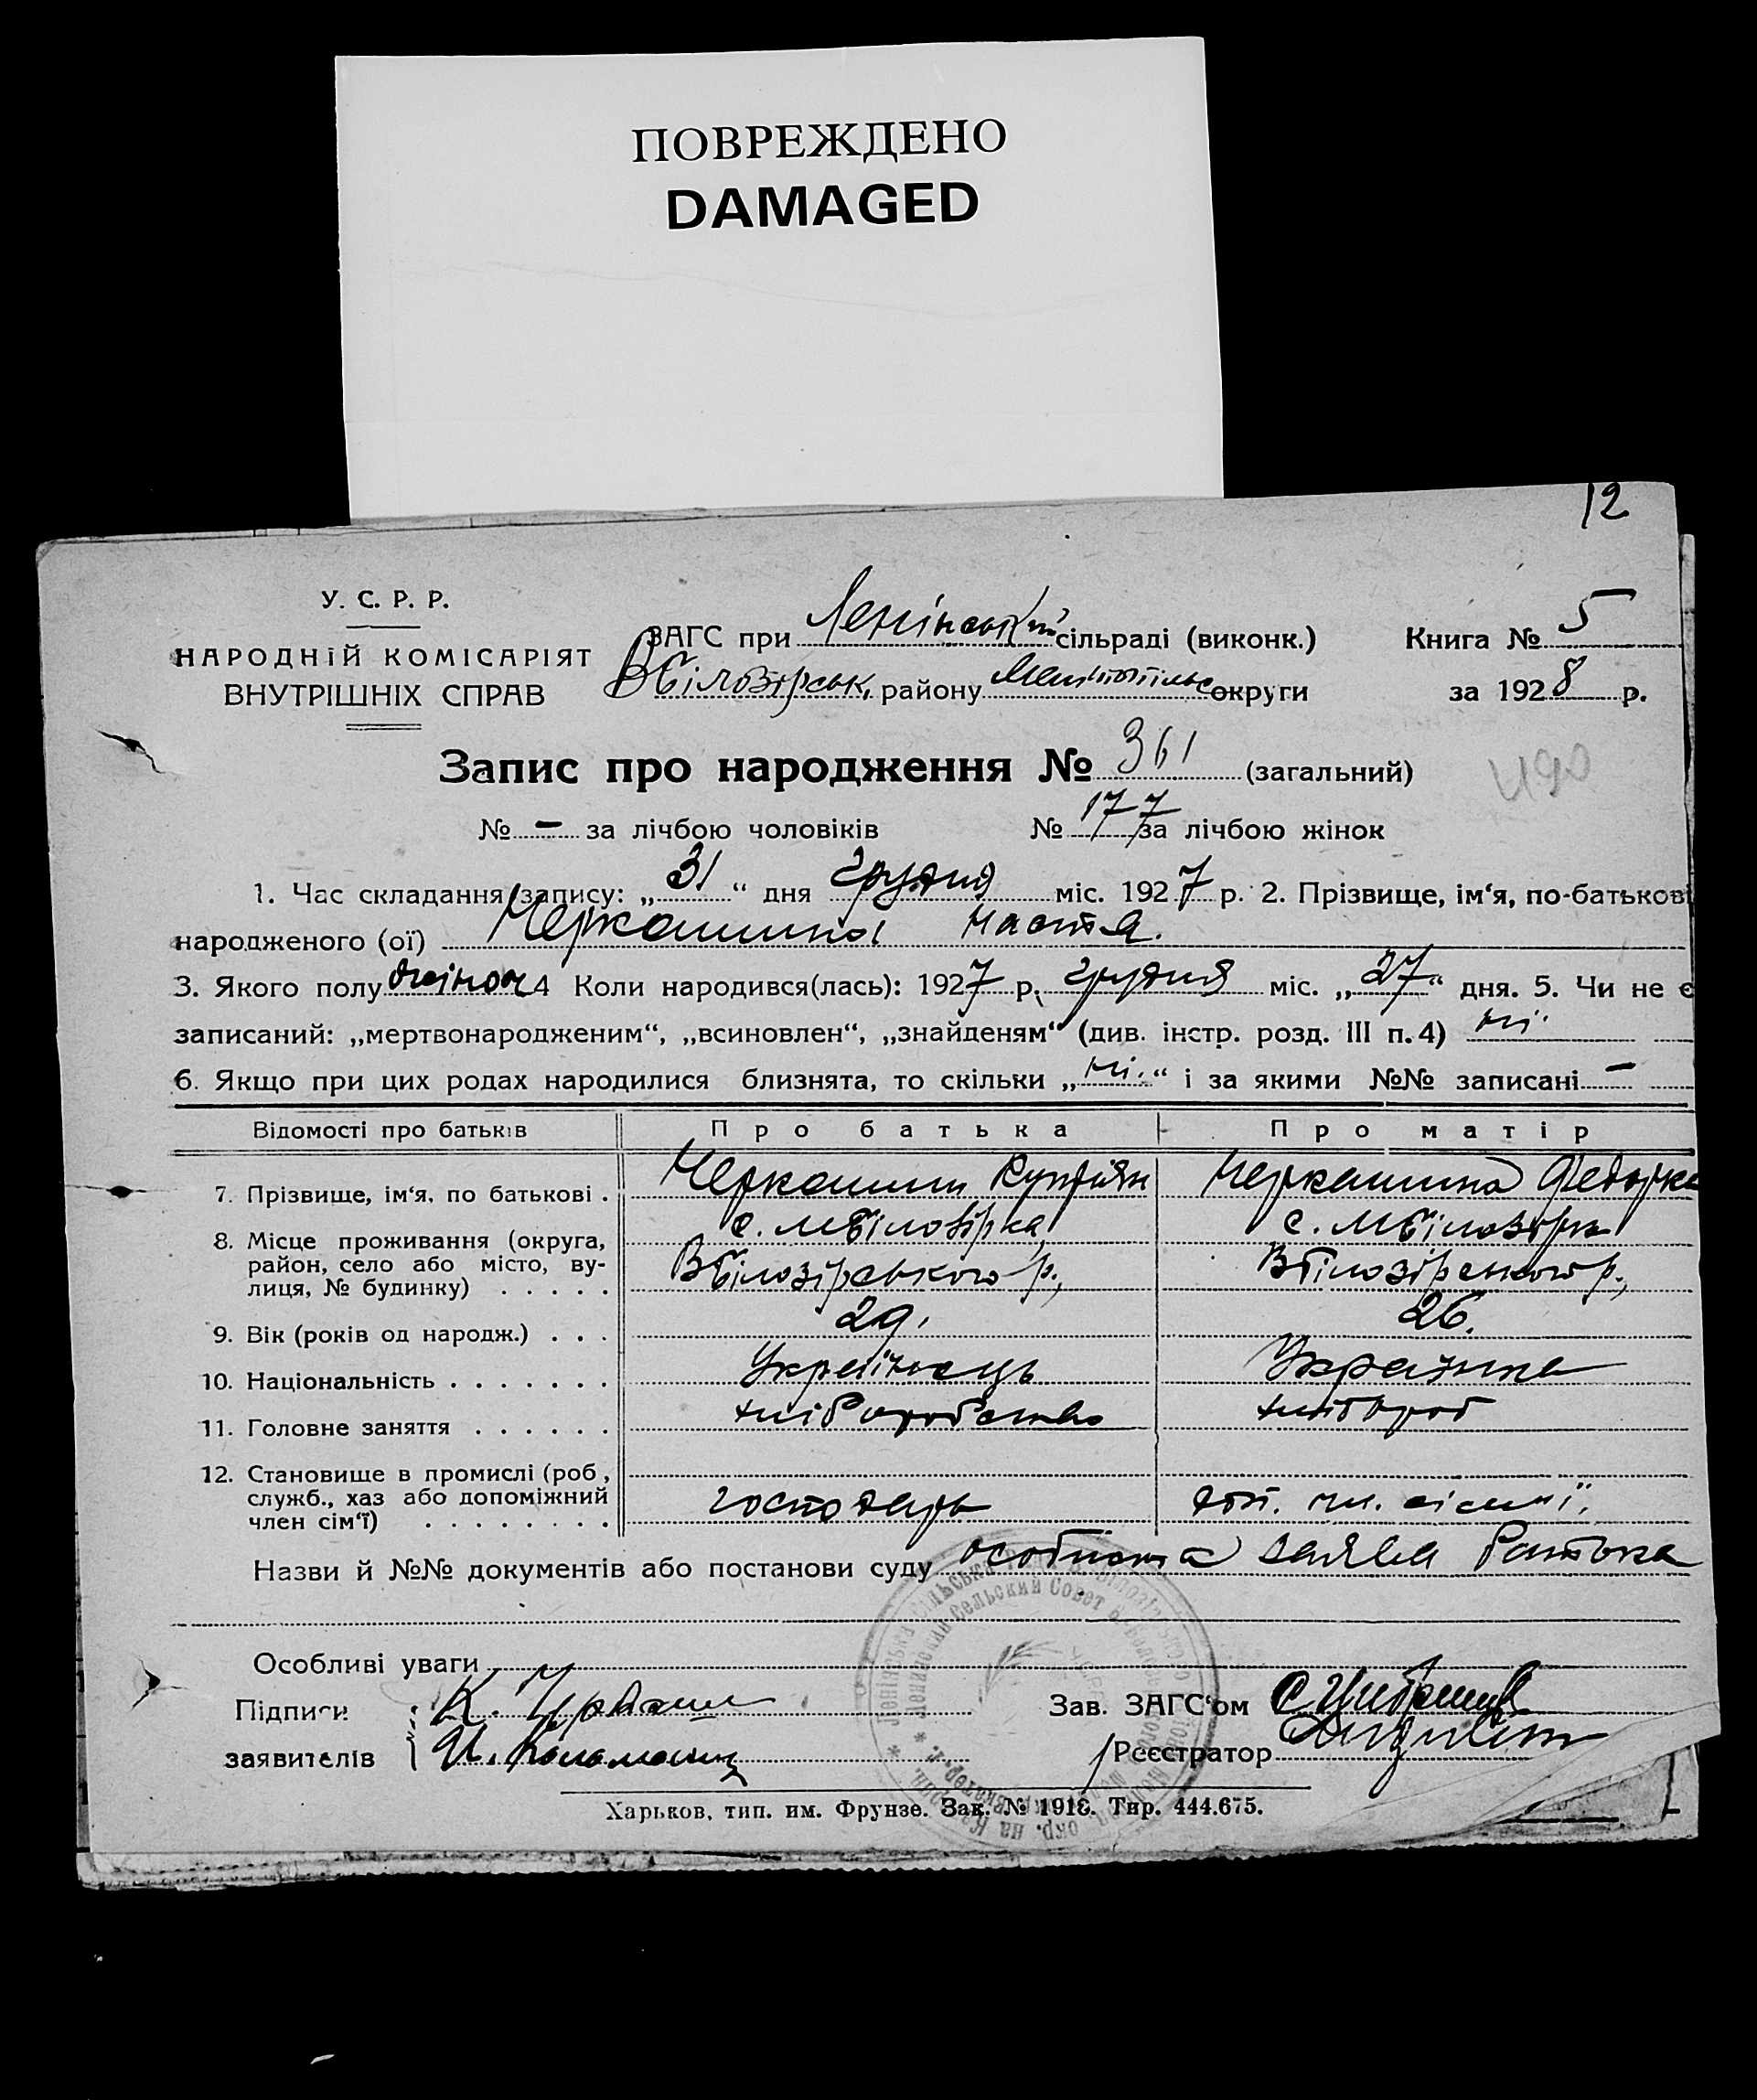 ПОВРЕЖДЕНО
DAMAGED
12
У. С. Р. Р.
НАРОДНІЙ КОМІСАРІЯТ
ВНУТРІШНІХ СПРАВ
ЗАГС при Ленінській сільраді (виконк.) Книга № 5
ВБілозірськ. району округи за 1928 р.
Запис про народження № 361 (загальний)
490
№ - за лічбою чоловіків № 177 за лічбою жінок
1. Час складання запису: „31“ дня грудня міс. 1927 р. 2. Прізвище, ім‘я, по-батькові
народженого (ої) Черкашина Настя.
3. Якого полу жіноч 4 Коли народився(лась): 1927 р. грудня міс. „27“ дня. 5. Чи не є
записаний: „мертвонародженим“, „всиновлен“, „знайденям“ (див. інстр. розд. III п. 4) ні
6. Якщо при цих родах народилися близнята, то скільки „ні.“ і за якими №№ записані -
Відомості про батьків Про батька Про матір
7. Прізвище, ім‘я, по батькові . Черкашин Купріян Черкашина Федорка
8. Місце проживання (округа, район, село або місто, вулиця, № будинку) . . . . . с. МБілозірка, ВБілозірського р., с. МБілозірка ВБілозірського р.,
9. Вік (років од народж.) . . . 29. 26.
10. Національність . . . . . . . Українець Українка
11. Головне заняття . . . . . . хліборобство хлібороб
12. Становище в промислі (роб, служб., хаз або допоміжний член сім‘ї) . . . . . . . . господарь доп. чл. сісм'ї,
Назви й №№ документів або постанови суду особиста заява батька
Особливі уваги
Підписи К. Зав. ЗАГС‘ом
заявителів И. Реєстратор
Ленінська Сільська
Ленинский Сельский Совет
Харьков, тип. им. Фрунзе. Зак. № 1918. Тир. 444.675.